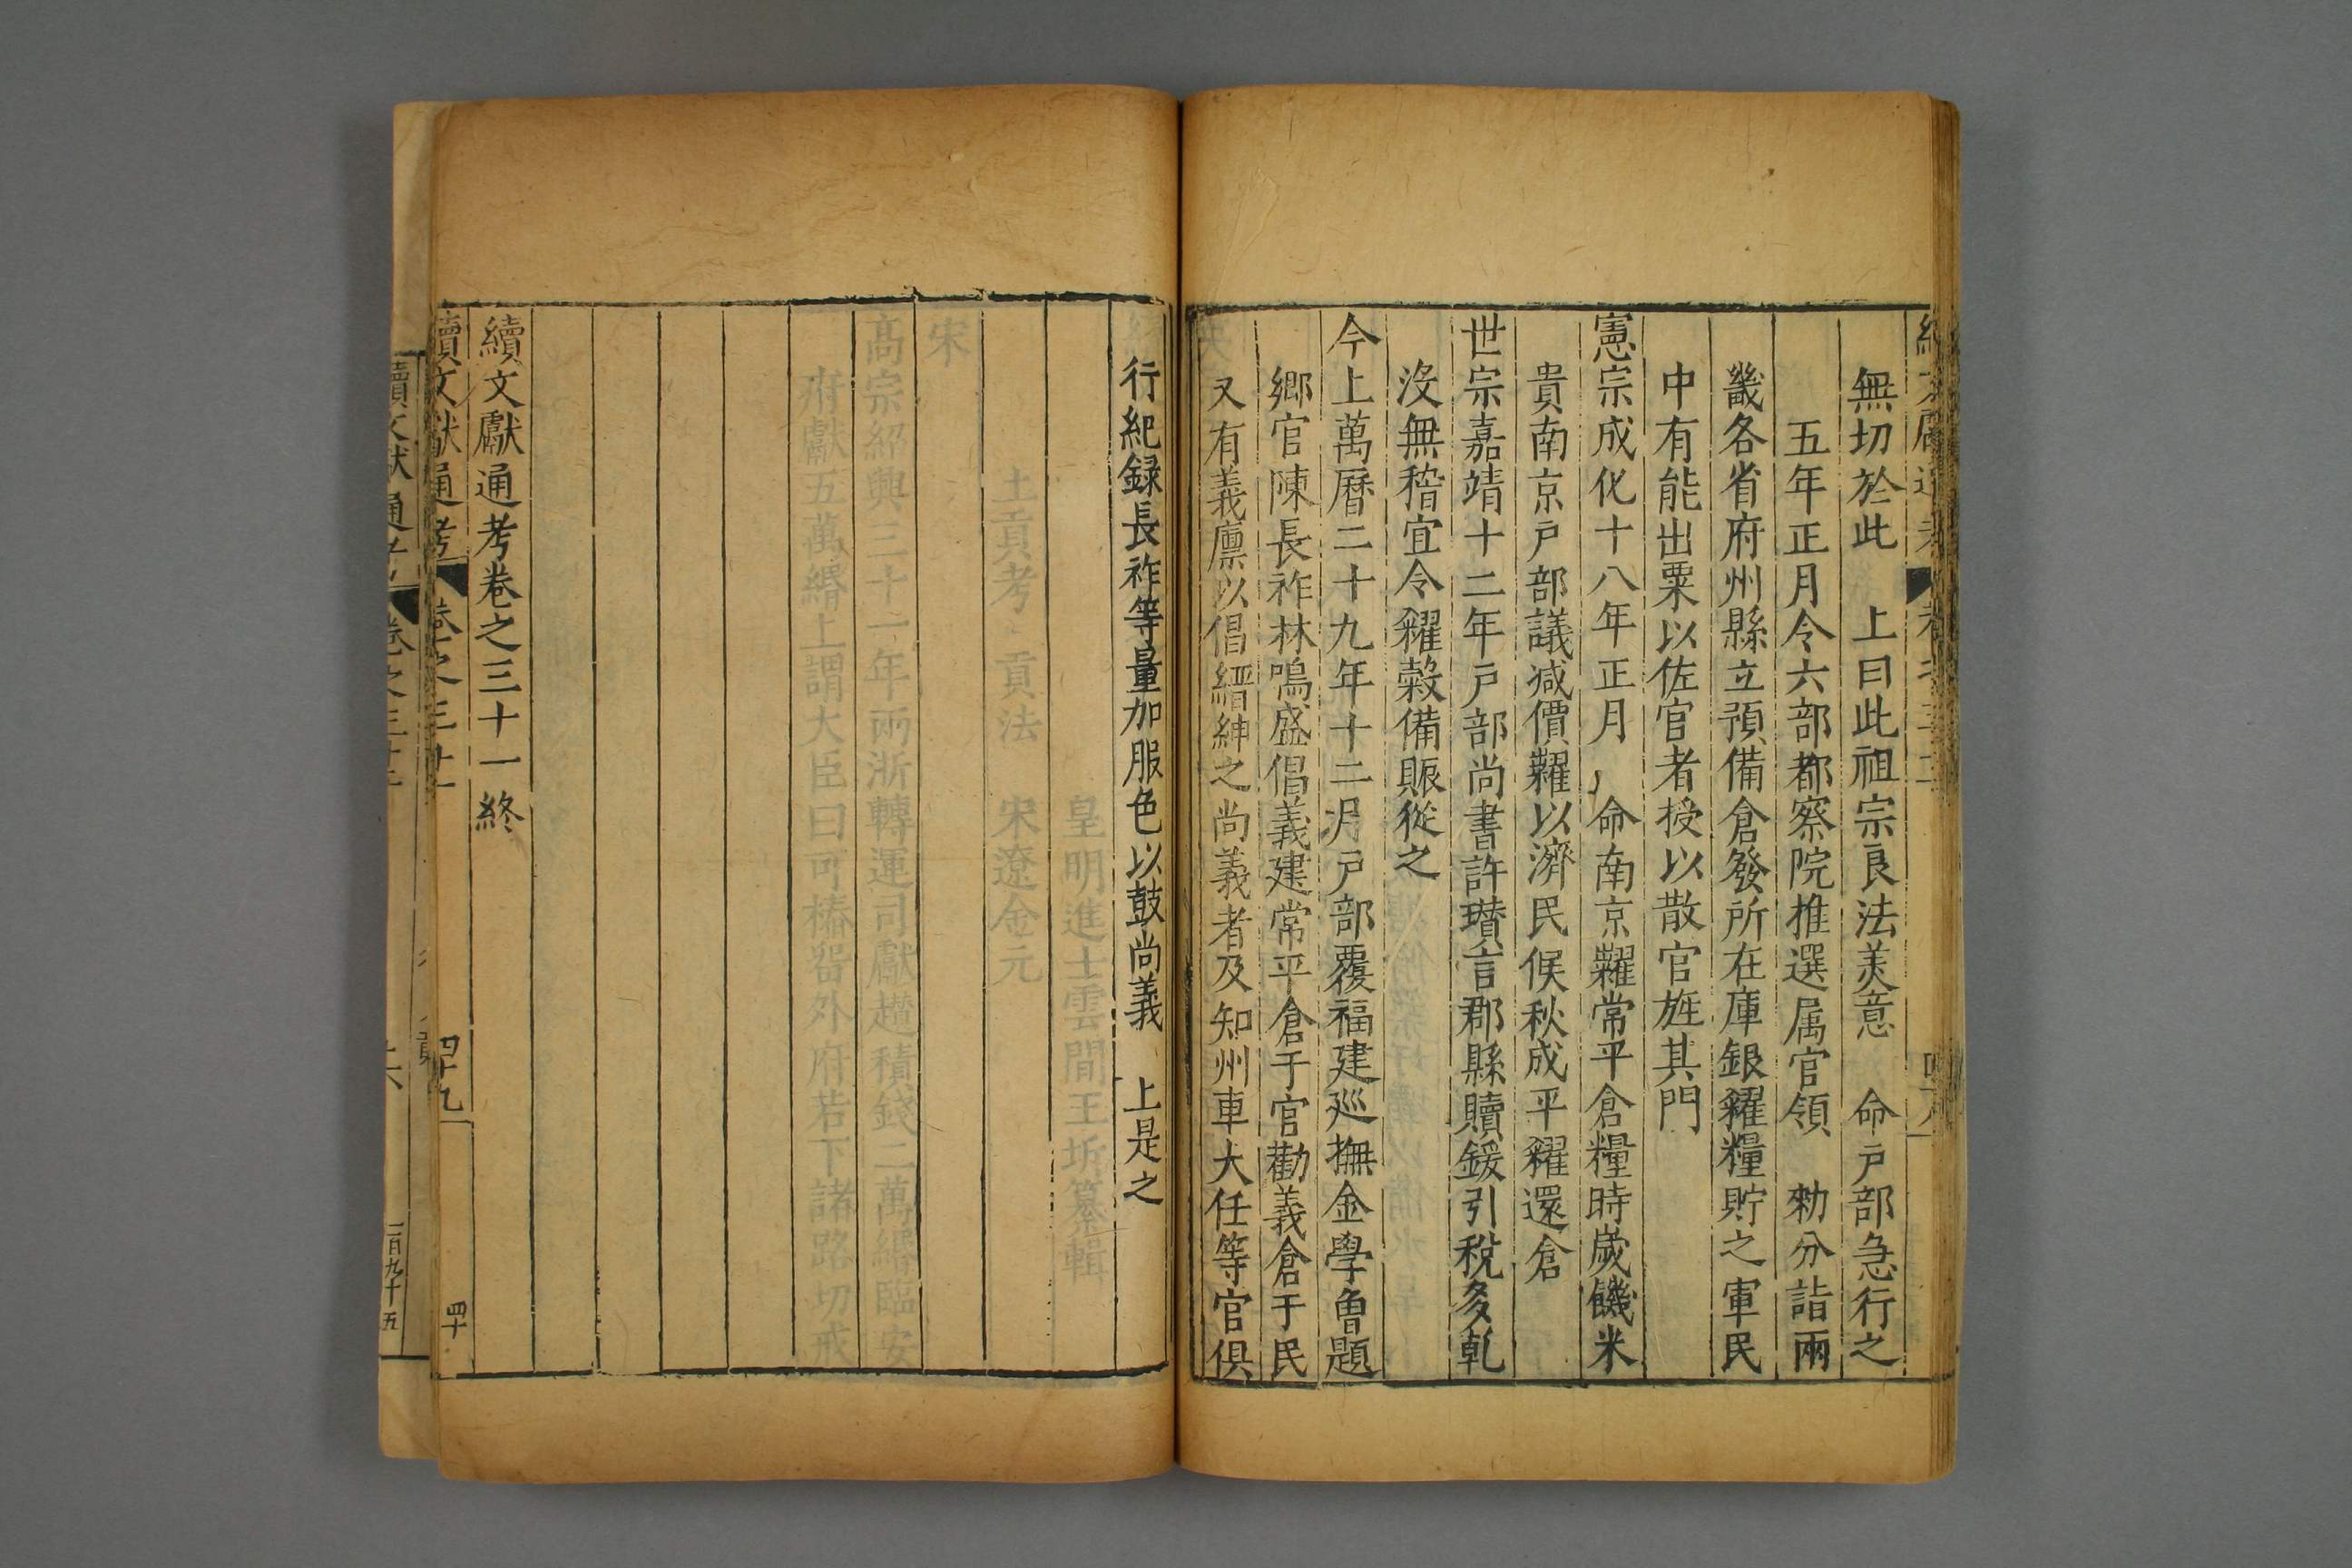 無切於此　上曰此祖宗良法美意　命戸部急行之
五年正月令六部都察院推選属官領　勑分詣兩
畿各省府州縣立預備倉發所在庫銀糴糧貯之軍民
中有能出粟以佐官者授以散官旌其門
憲宗成化十八年正月　命南京糶常平倉糧時歲饑米
貴南京戸部議減價糶以濟民候秋成平糴還倉
世宗嘉靖十二年戸部尚書許瓚言郡縣贖鍰引稅多乾
沒無稽宜令糴榖備賑從之
今上萬曆二十九年十二月戸部覆福建巡撫金學曾題
鄉官陳長祚林鳴盛倡義建常平倉于官勸義倉于民
又有義廪以倡縉紳之尚義者及知州車大任等官俱
行紀録長祚等量加服色以鼓尚義　上是之
續文獻通考卷之三十一終
續文獻通考
四十九
四十
續文獻通考
二百九十五